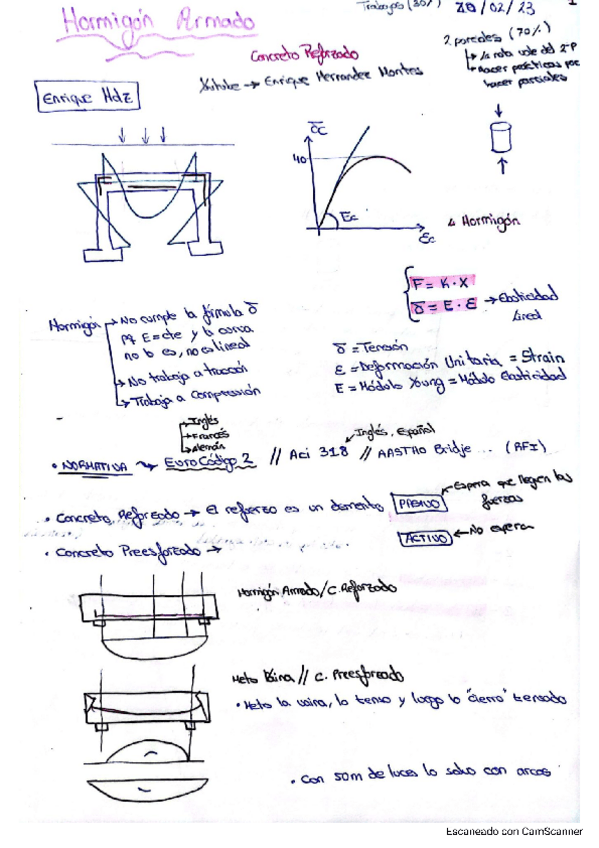 Trabajos (30%) 20/02/23 1
Hormigón Armado
2 parciales (70%)
↳ la nota vale del 2ºP
↳ Hacer prácticas por
hacer parciales
Concreto Reforzado
Youtube → Enrique Hernandez Montes
Enrique Hdz
σc
40
Ec
εc
Hormigón
F = K · X
σ = E · ε → Elasticidad
Lineal
Hormigón → No cumple la fórmula σ
pq E = cte y la curva
no lo es, no es lineal
→ No trabaja a tracción
→ Trabaja a compresión
σ = Tensión
ε = Deformación Unitaria = Strain
E = Módulo Young = Módulo Elasticidad
→ Inglés
→ Francés
→ Alemán
Inglés, Español
• NORMATIVA → EuroCódigo 2 // Aci 318 // AASTHO Bridje ... (RFI)
• Concreto Reforzado → El refuerzo es un elemento PASIVO ← Espera que lleguen las
fuerzas
• Concreto Preesforzado → ACTIVO ← No espera
Hormigón Armado / C. Reforzado
Meto Vaina // C. Preesforzado
• Meto la vaina, la tenso y luego lo "cierro" tensado
• Con 50m de luces lo salvo con arcos
Escaneado con CamScanner